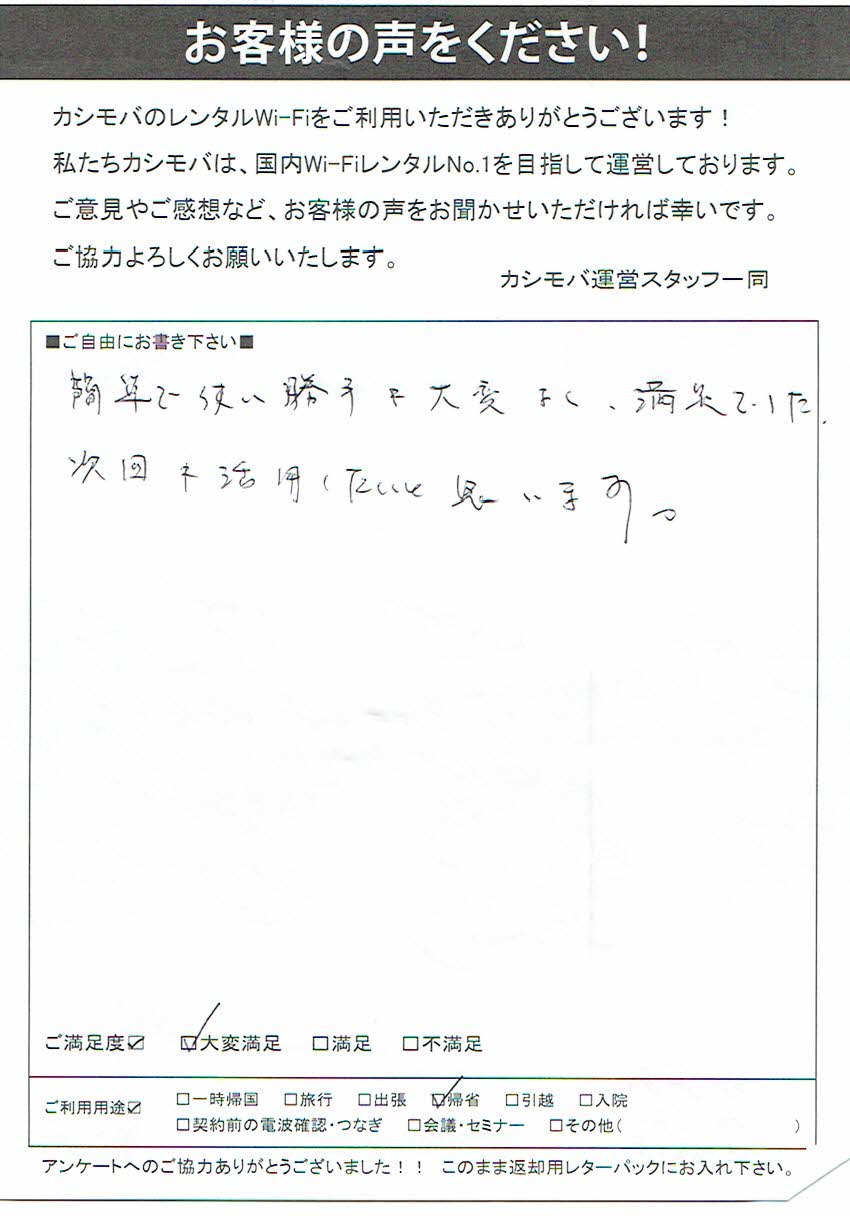 お客様の声をください!
カシモバのレンタルWi-Fiをご利用いただきありがとうございます！
私たちカシモバは、国内Wi-FiレンタルNo.1を目指して運営しております。
ご意見やご感想など、お客様の声をお聞かせいただければ幸いです。
ご協力よろしくお願いいたします。
カシモバ運営スタッフ一同
■ご自由にお書き下さい■
簡単で使い勝手も大変よく、満足でした.
次回も活用したいと思います。
ご満足度☑ ☑大変満足 □満足 □不満足
ご利用用途☑ □一時帰国 □旅行 □出張 ☑帰省 □引越 □入院
□契約前の電波確認・つなぎ □会議・セミナー □その他( )
アンケートへのご協力ありがとうございました！！ このまま返却用レターパックにお入れ下さい。